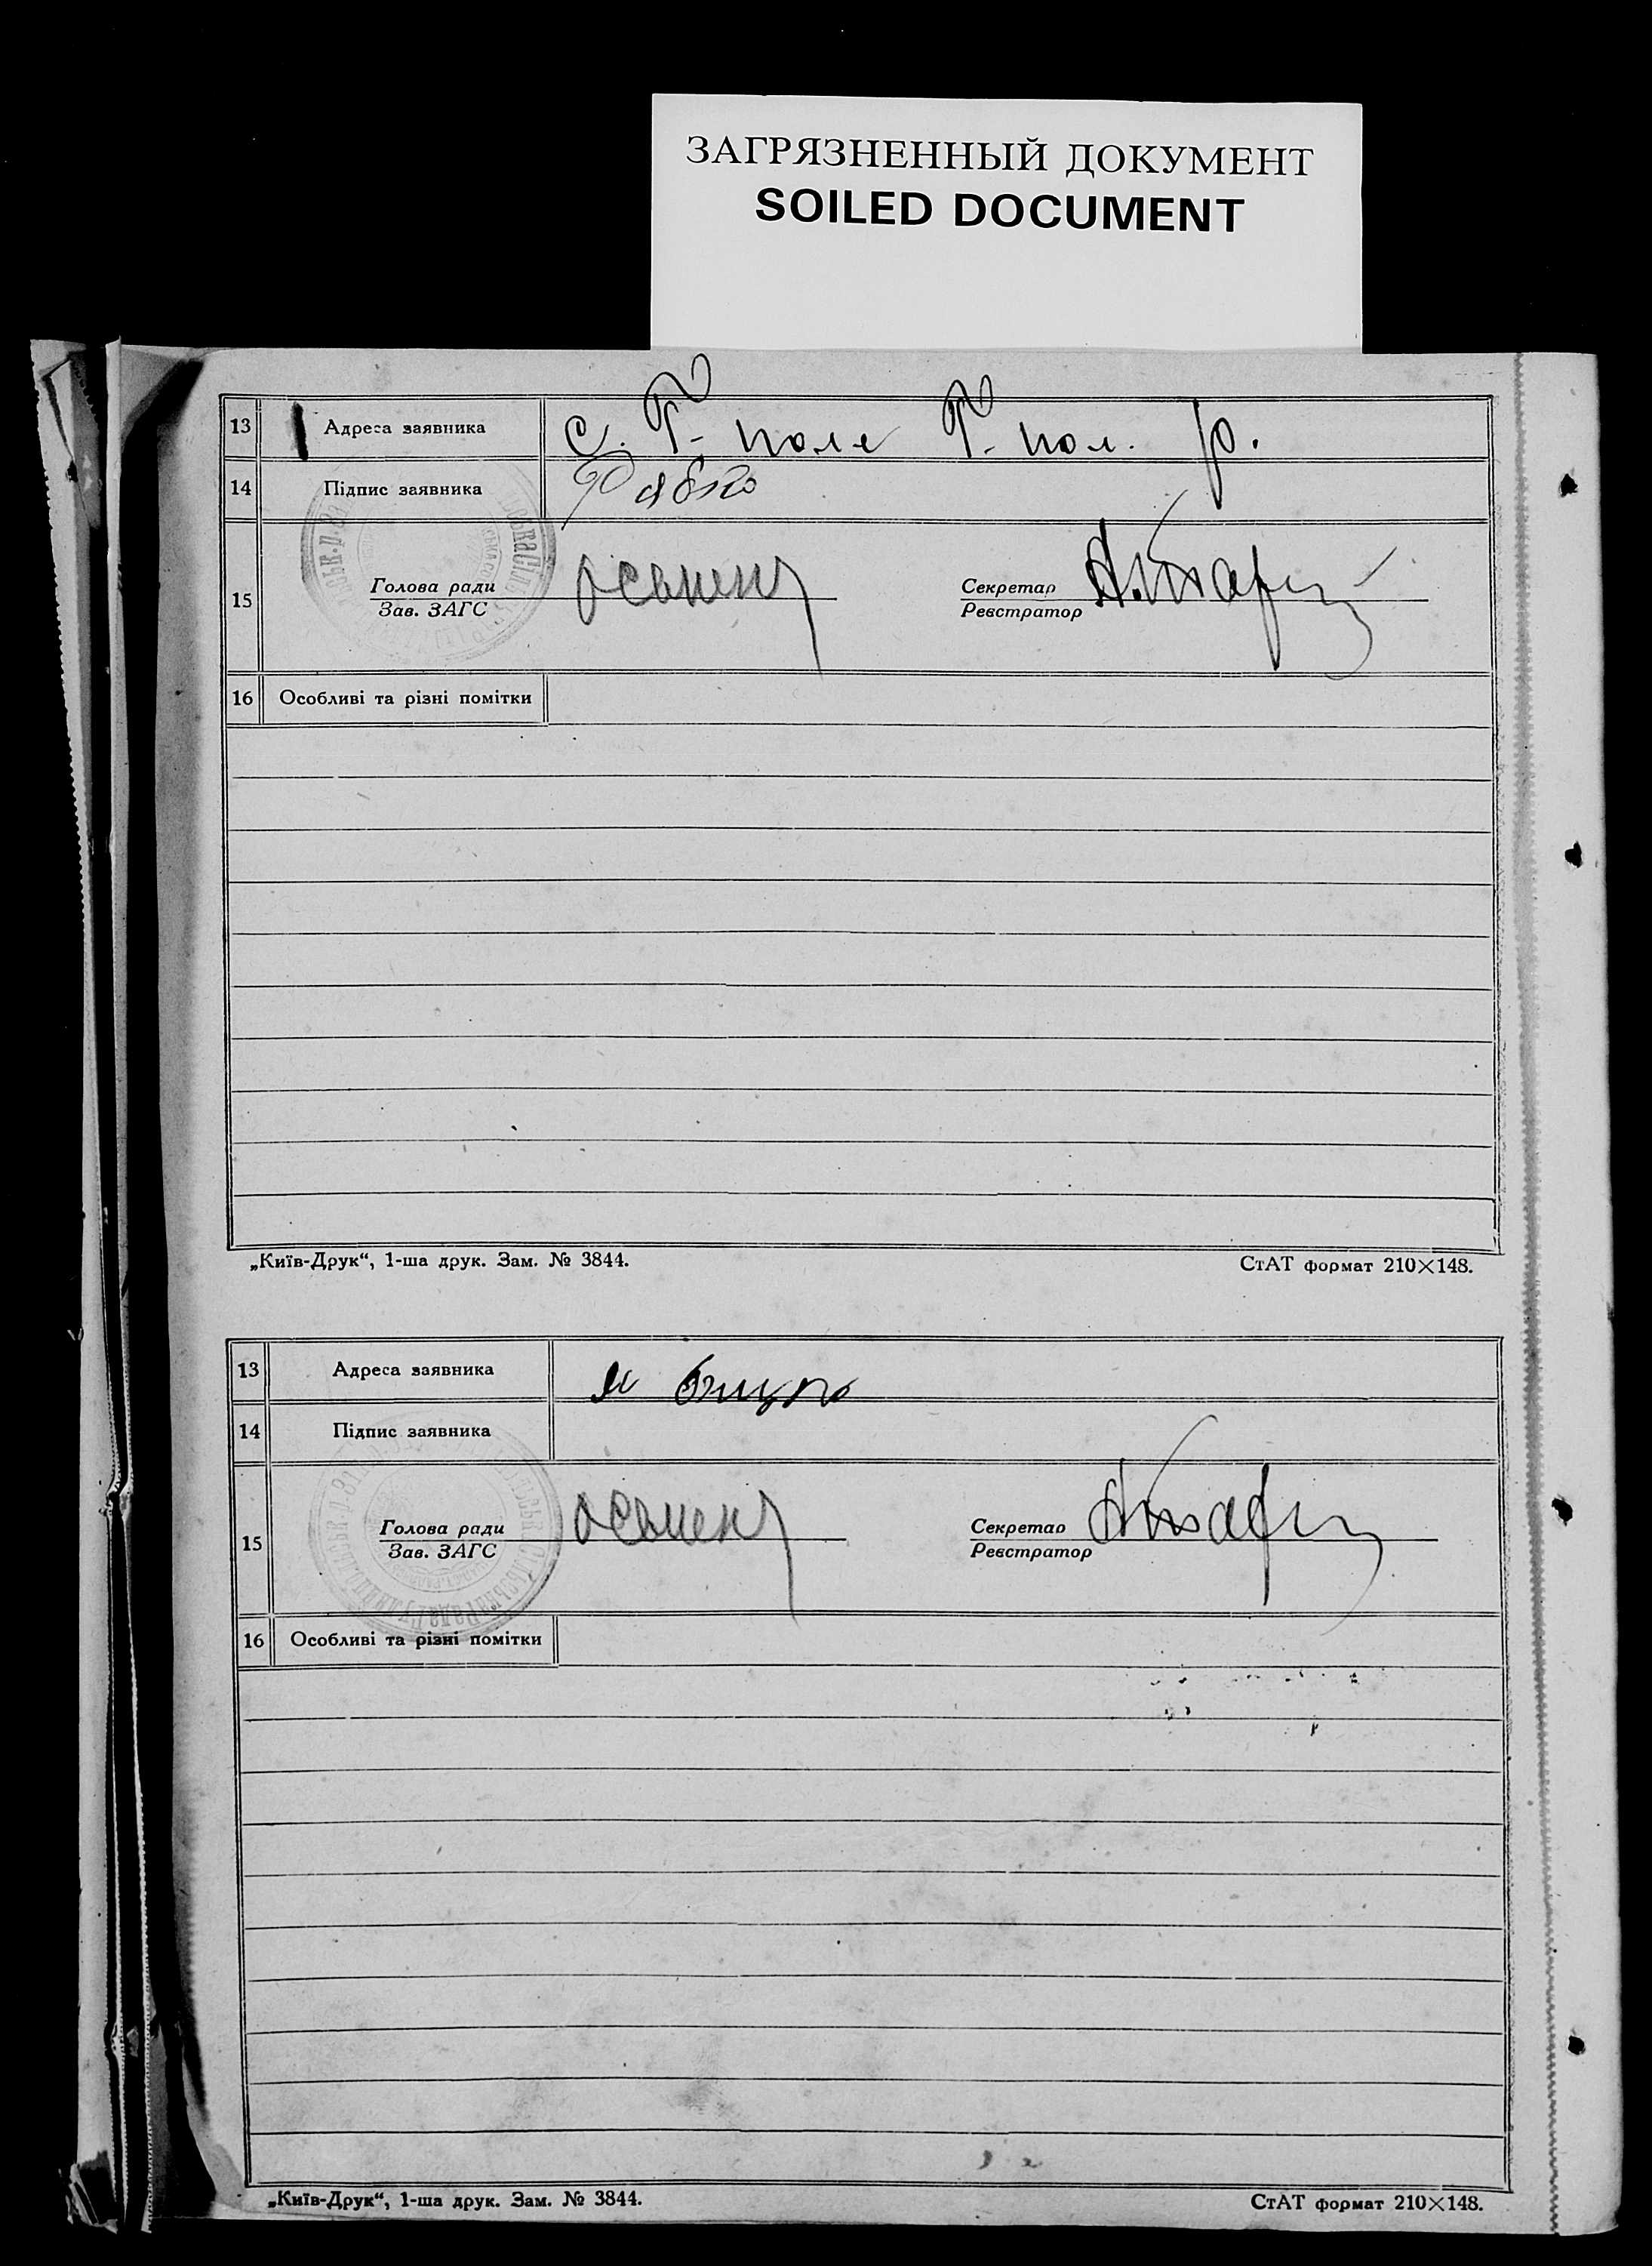 ЗАГРЯЗНЕННЫЙ ДОКУМЕНТ
SOILED DOCUMENT
13 Адреса заявника с. Г- поле Г- пол. р.
14 Підпис заявника
15 Голова ради Секретар
Зав. ЗАГС Реєстратор
16 Особливі та різні помітки
„Київ-Друк“, 1-ша друк. Зам. № 3844. СтАТ формат 210×148.
13 Адреса заявника
14 Підпис заявника
15 Голова ради Секретар
Зав. ЗАГС Реєстратор
16 Особливі та різні помітки
„Київ-Друк“, 1-ша друк. Зам. № 3844. СтАТ формат 210×148.